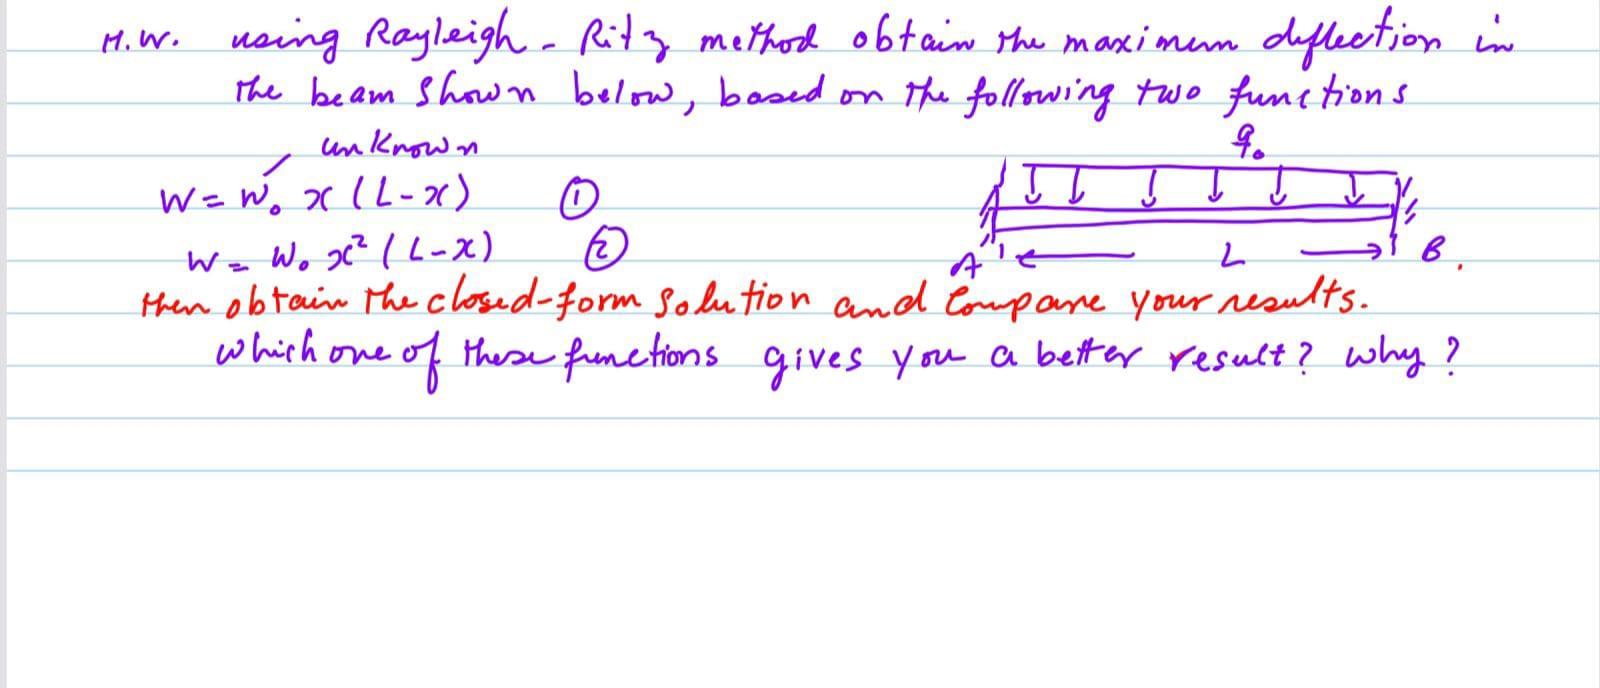 H.W. using Rayleigh - Ritz method obtain the maximum deflection in
the beam shown below, based on the following two functions
unknown
W = W₀ x (L-x) ①
W = W₀ x² (L-x) ②
q₀
A L B.
then obtain the closed-form solution and compare your results.
which one of these functions gives you a better result? why?